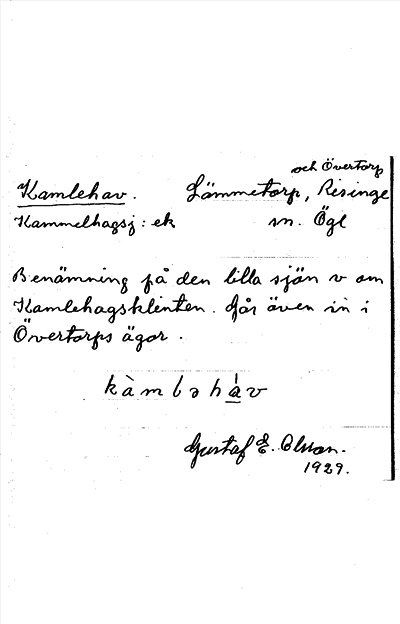 och Övertorp
Kamlehav. Lämmetorp, Risinge
Kammelhagsj: ek sn. Ögl
Benämning på den lilla sjön v om
Kamlehagsklinten. Går även in i
Övertorps ägor.
kàmləhàv
Gustaf E. Olsson.
1929.